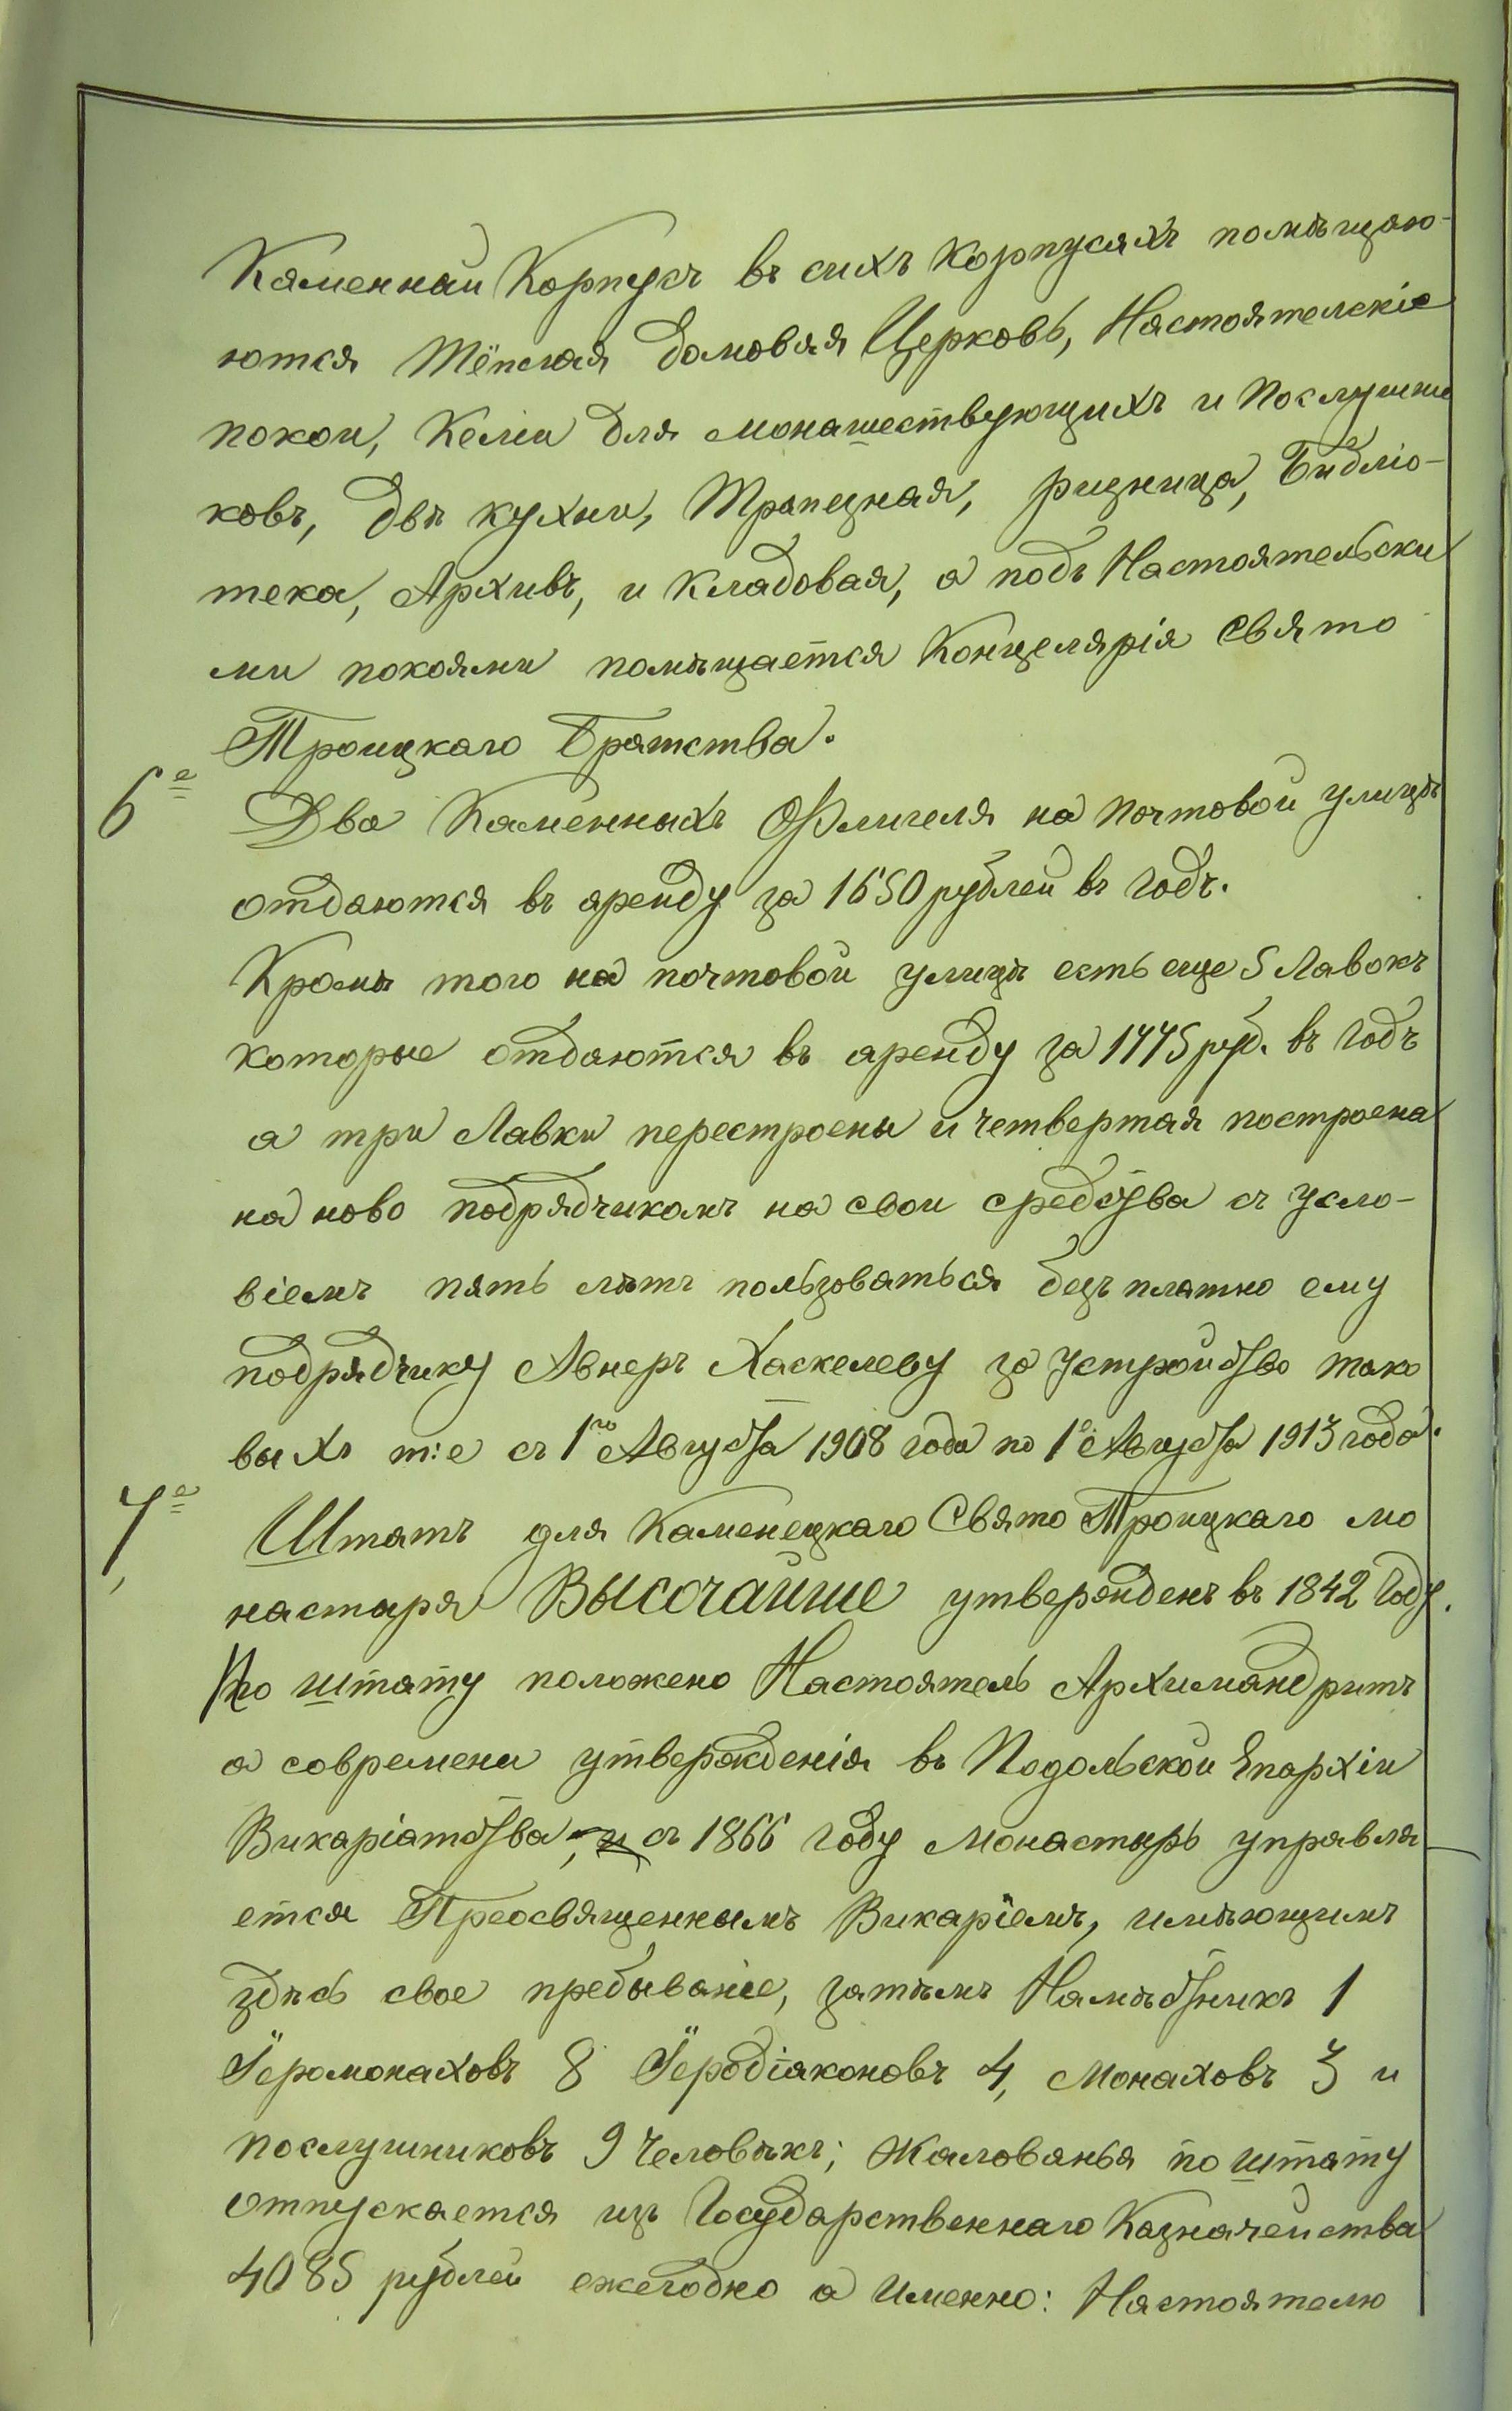 Каменнай Корпусъ въ сихъ Корпусахъ помѣщаю-
ются Тёплая домовая Церковь, Настоятелскіе
покои, Келіи для монашествующихъ и Послушни
ковъ, двѣ кухни, Трапезная, ризница, Библіо-
тека, Архивъ, и Кладовая, а подъ Настоятельски
ми покоями помѣщается Концелярія Свято
Троицкаго Братства.
6е Два Каменныхъ Флигеля на почтовой улицѣ
отдаются въ аренду за 1650 рублей въ годъ.
Кромѣ того на почтовой улицѣ есть еще 5 Лавокъ
которые отдаются въ аренду за 1775 руб. въ годъ
а три Лавки перестроены и четвертая построена
на ново подрядчикомъ на свои средства съ усло-
віемъ пять лѣтъ пользоваться безъ платно ему
подрядчику Авнеръ Хаскелеву за устройство тако
выхъ т:е съ 1го Августа 1908 года по 1е Августа 1913 года.
7е Штатъ для Каменецкаго Свято Троицкаго мо
настыря Высочайше утвержденъ въ 1842 Году.
По штату положено Настоятель Архимандритъ
а современи утвержденія въ Подольской Епархіи
Викаріатства, съ 1866 году Монастырь управля
ется Преосвященнымъ Викаріемъ, имѣющимъ
здѣсь свое пребываніе, затѣмъ Намѣстникъ 1
Іеромонаховъ 8 Іеродіаконовъ 4, Монаховъ 3 и
послушниковъ 9 Человѣкъ; Жалованья по штату
отпускается изъ Государственнаго Казначейства
4085 рублей ежегодно а Именно: Настоятелю